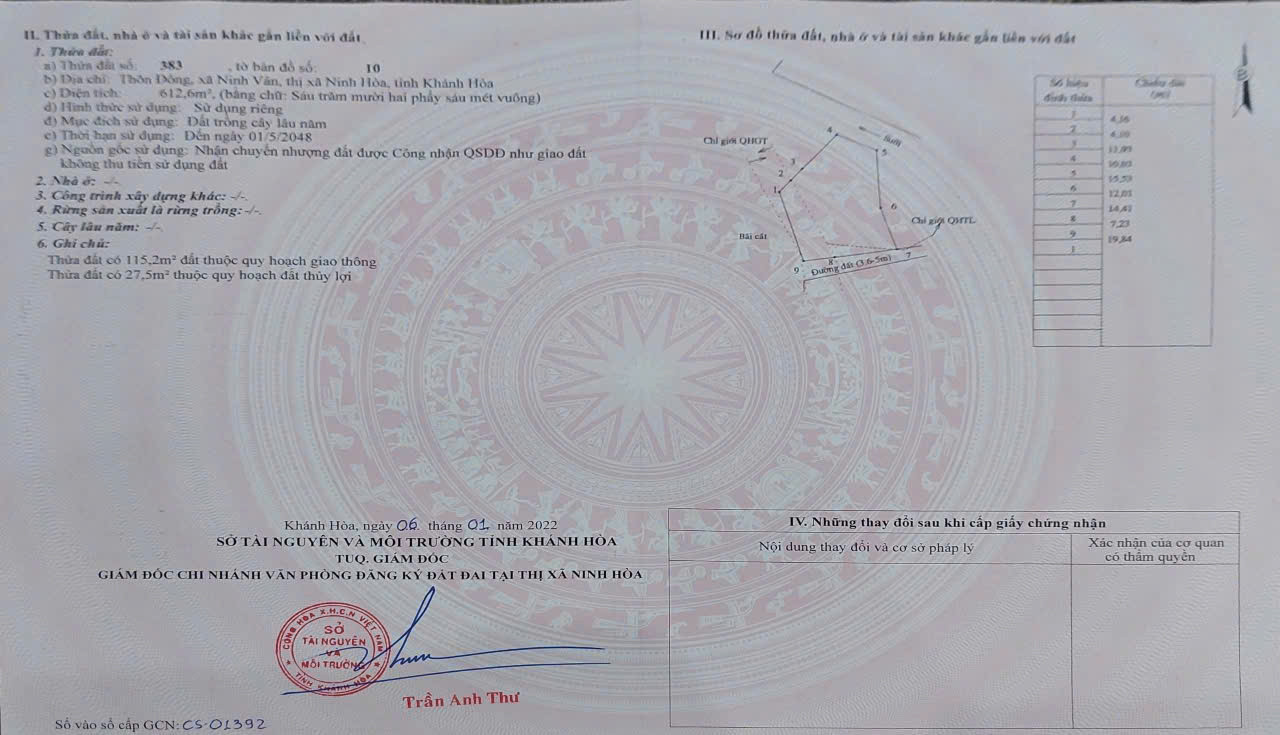 II. Thửa đất, nhà ở và tài sản khác gắn liền với đất
1. Thửa đất:
a) Thửa đất số: 383 , tờ bản đồ số: 10
b) Địa chỉ: Thôn Đông, xã Ninh Vân, thị xã Ninh Hòa, tỉnh Khánh Hòa
c) Diện tích: 612,6m², (bằng chữ: Sáu trăm mười hai phẩy sáu mét vuông)
d) Hình thức sử dụng: Sử dụng riêng
đ) Mục đích sử dụng: Đất trồng cây lâu năm
e) Thời hạn sử dụng: Đến ngày 01/5/2048
g) Nguồn gốc sử dụng: Nhận chuyển nhượng đất được Công nhận QSDĐ như giao đất
không thu tiền sử dụng đất
2. Nhà ở: -/-
3. Công trình xây dựng khác: -/-
4. Rừng sản xuất là rừng trồng: -/-
5. Cây lâu năm: -/-
6. Ghi chú:
Thửa đất có 115,2m² đất thuộc quy hoạch giao thông
Thửa đất có 27,5m² thuộc quy hoạch đất thủy lợi
III. Sơ đồ thửa đất, nhà ở và tài sản khác gắn liền với đất
Chỉ giới QHGT
Suối
Bãi cát
Chỉ giới QHTL
Đường đất (3.6-5m)
1
2
3
4
5
6
7
8
9
Số hiệu
đỉnh thửa
Chiều dài
(m)
1
2
3
4
5
6
7
8
9
1
14,41
7,23
19,84
Khánh Hòa, ngày 06 tháng 01 năm 2022
SỞ TÀI NGUYÊN VÀ MÔI TRƯỜNG TỈNH KHÁNH HÒA
TUQ. GIÁM ĐỐC
GIÁM ĐỐC CHI NHÁNH VĂN PHÒNG ĐĂNG KÝ ĐẤT ĐAI TẠI THỊ XÃ NINH HÒA
CỘNG HÒA X.H.C.N VIỆT NAM
SỞ
TÀI NGUYÊN
VÀ
MÔI TRƯỜNG
TỈNH KHÁNH HÒA
Trần Anh Thư
Số vào sổ cấp GCN: CS-01392
IV. Những thay đổi sau khi cấp giấy chứng nhận
Nội dung thay đổi và cơ sở pháp lý
Xác nhận của cơ quan
có thẩm quyền